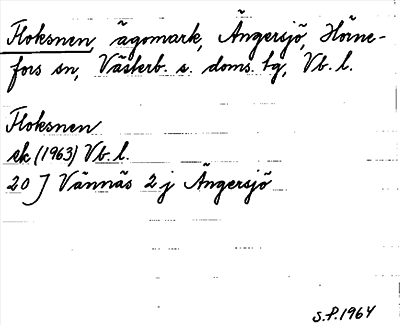 Floksnen, ägomark, Ängersjö, Hörne-
fors sn, Västerb. s. doms. tg, Vb. l.
Floksnen
ek (1963) Vb. l.
20 J Vännäs 2 j Ängersjö
S.P. 1964